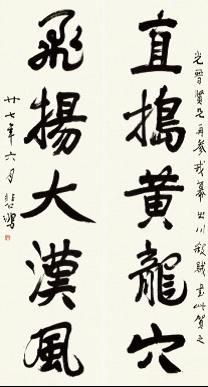 光曾賢兄再參戎幕出川殺賊書此賀之
直搗黃龍穴
飛揚大漢風
廿七年六月悲鴻